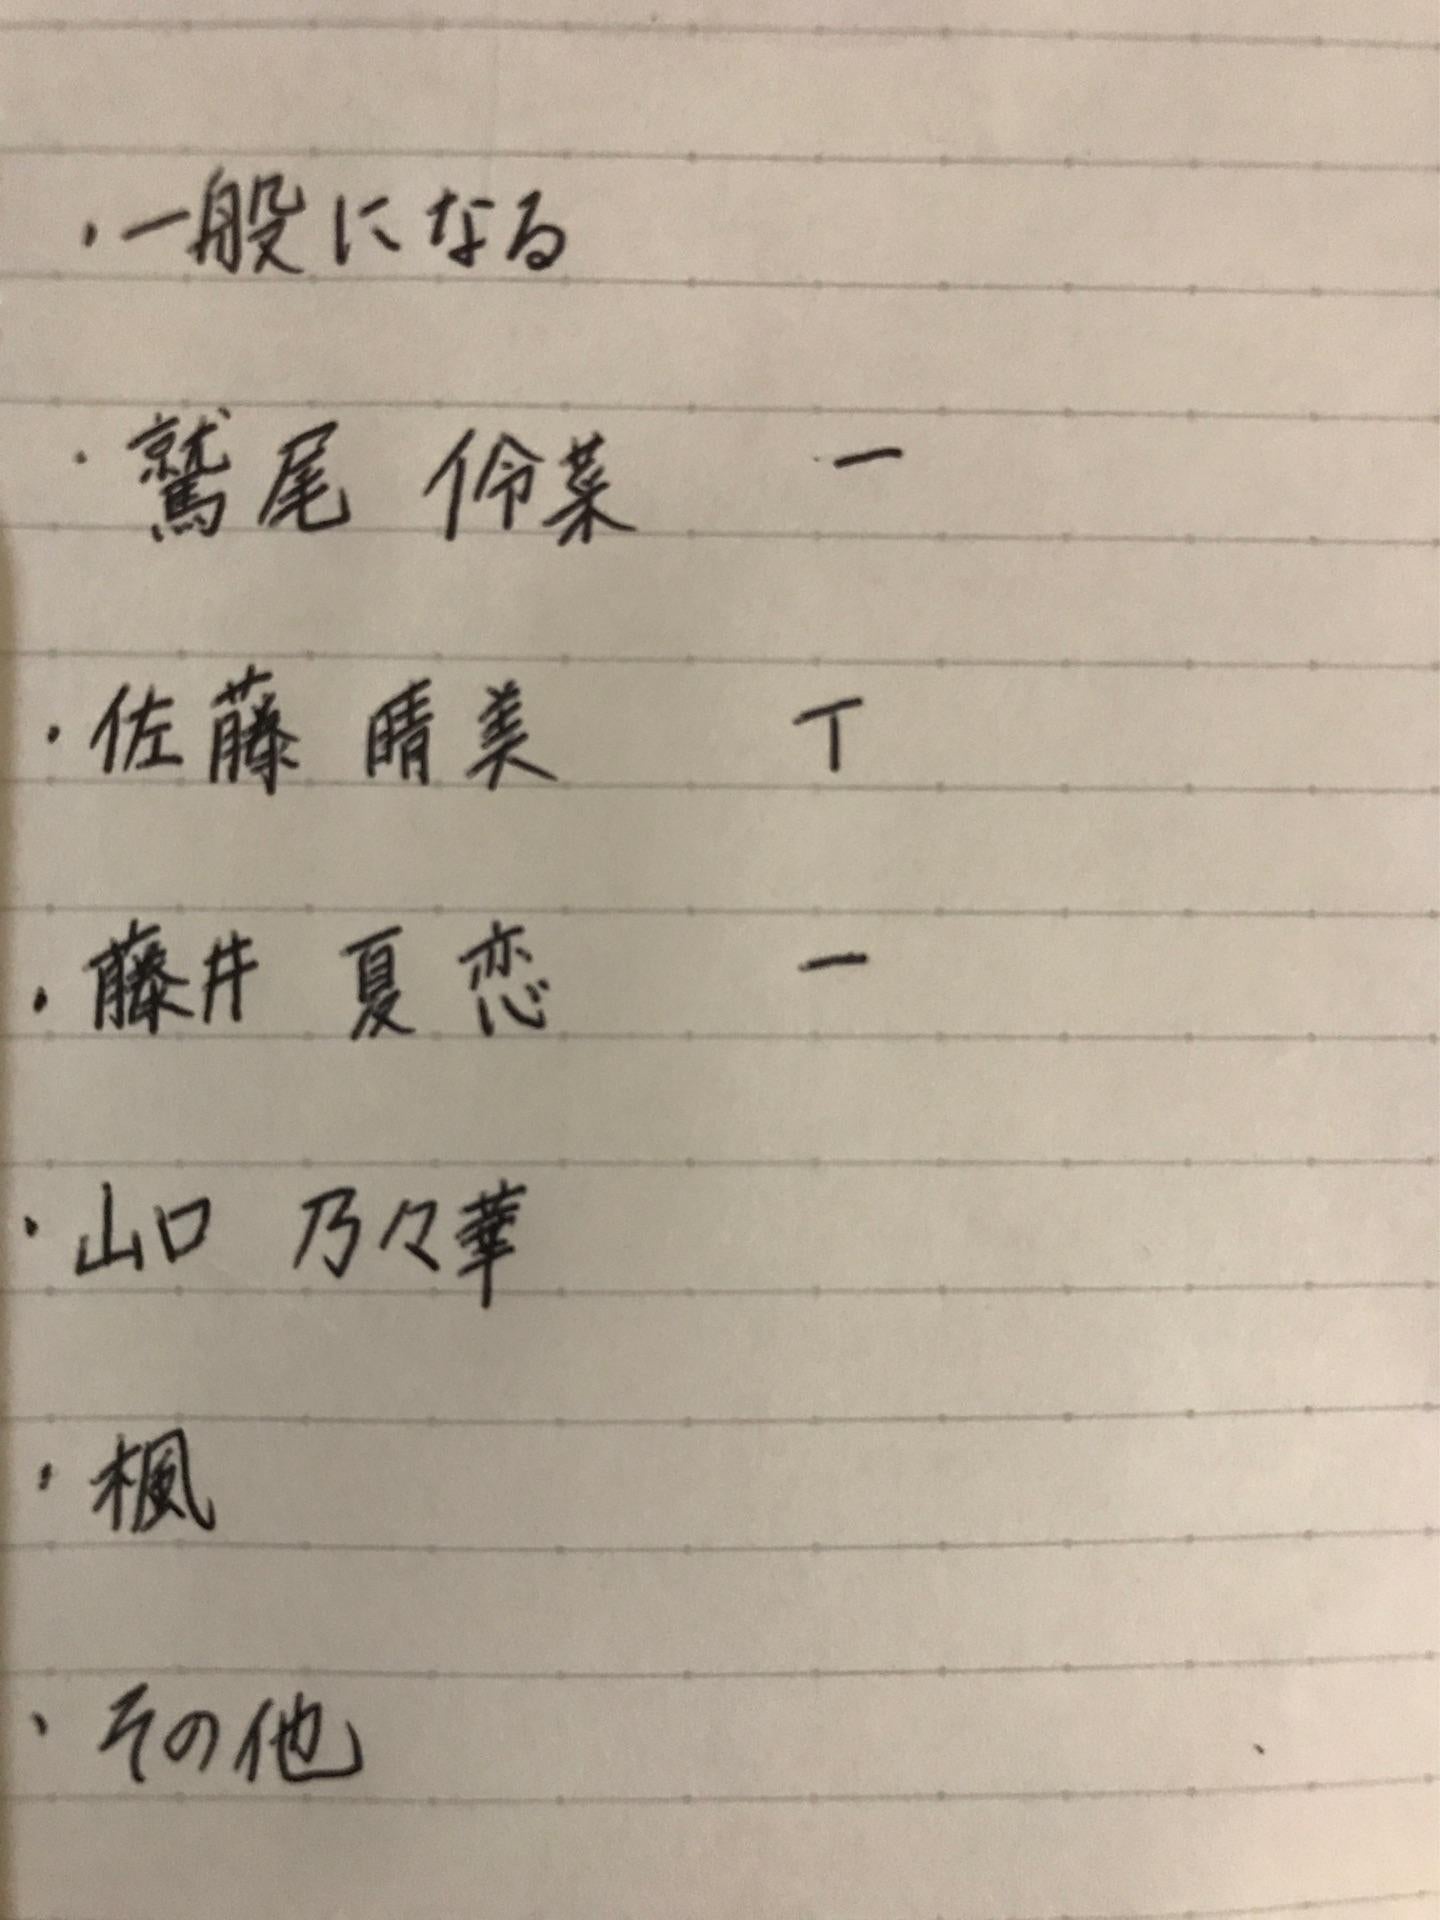 ・一般になる
・鷲尾 伶菜 一
・佐藤 晴美 丅
・藤井 夏恋 一
・山口 乃々華
・楓
・その他